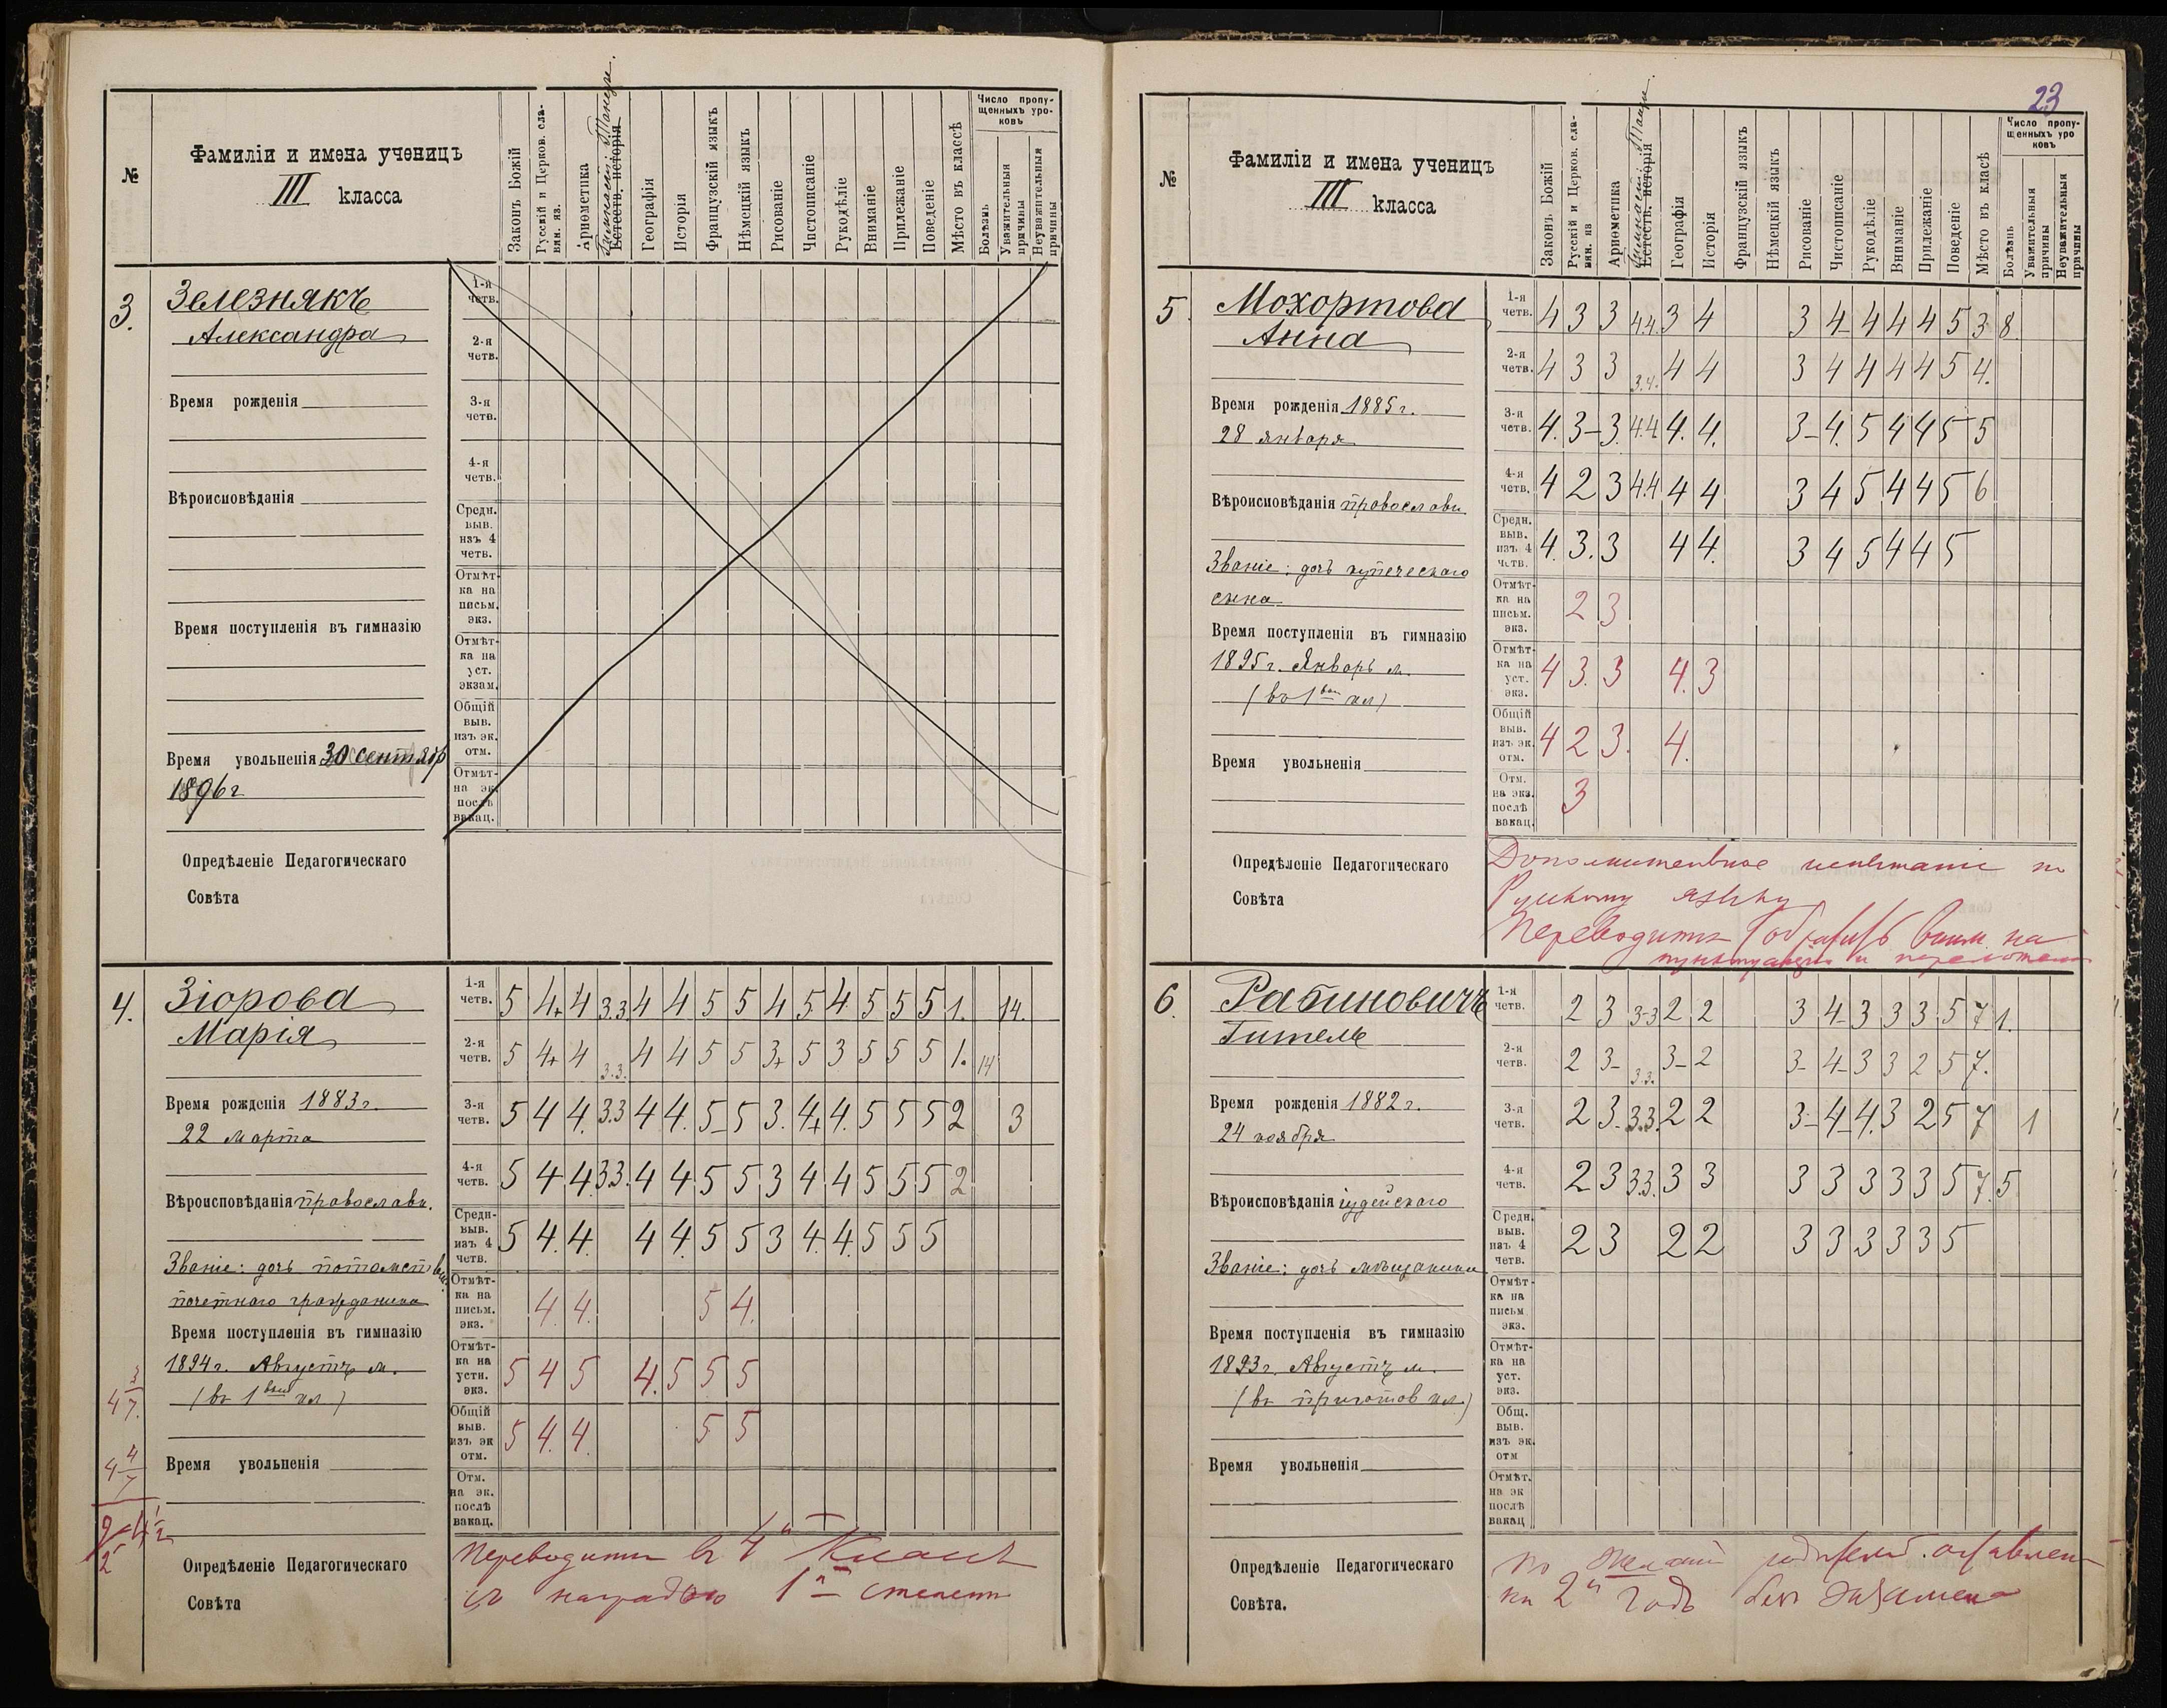 №
Фамиліи и имена ученицъ
III класса
Законъ Божій
Русскій и Церков. сла-
вян. яз.
Ариѳметика
Гимнаст. Танцы.
Естеств. исторія
Географія
Исторія
Французскій языкъ
Нѣмецкій языкъ
Рисованіе
Чистописаніе
Рукодѣліе
Вниманіе
Прилежаніе
Поведеніе
Мѣсто въ классѣ
Число пропу-
щенныхъ уро-
ковъ
Болѣзнь
Уважительныя
причины
Неуважительныя
причины
3.
Зелезнякъ
Александра
Время рожденія
Вѣроисповѣданія
Время поступленія въ гимназію
Время увольненія 30 сентябр
1896 г
Опредѣленіе Педагогическаго
Совѣта
1-я
четв.
2-я
четв.
3-я
четв.
4-я
четв.
Средн.
выв.
изъ 4
четв.
Отмѣт-
ка на
письм.
экз.
Отмѣт-
ка на
уст.
экзам.
Общій
выв.
изъ эк.
отм.
Отмѣт-
на эк.
послѣ
вакац.
4.
Зіорова
Марія
Время рожденія 1883 г.
22 марта
Вѣроисповѣданія православн.
Званіе: дочь потомств
почетнаго гражданина
Время поступленія въ гимназію
1894 г. Августъ м.
(въ 1вый кл)
Время увольненія
Опредѣленіе Педагогическаго
Совѣта
1-я
четв. 5 4+ 4 3.3 4 4 5 5 4 5 4 5 5 5 1. 14.
2-я
четв. 5 4+ 4 3.3. 4 4 5 5 3+ 5 3 5 5 5 1. 14
3-я
четв. 5 4 4. 3.3 4 4. 5- 5 3. 4+ 4. 5 5 5 2 3
4-я
четв. 5 4 4. 3.3. 4 4 5 5 3 4 4 5 5 5 2
Средн-
выв.
изъ 4
четв. 5 4. 4. 4 4. 5 5 3 4. 4. 5 5 5
Отмѣт-
ка на
письм.
экз. 4 4. 5 4.
Отмѣт-
ка на
устн.
экз. 5 4 5 4. 5 5 5
Общій
выв.
изъ эк
отм. 5 4. 4. 5 5
Отм.
на эк.
послѣ
вакац.
Переводится въ 4й классъ
съ наградою 1й степени
23
№
Фамиліи и имена ученицъ
III класса
Законъ Божій
Русскій и Церков. сла-
вян. яз
Ариѳметика
Гимнаст. Танцы
Естеств. исторія
Географія
Исторія
Французскій языкъ
Нѣмецкій языкъ
Рисованіе
Чистописаніе
Рукодѣліе
Вниманіе
Прилежаніе
Поведеніе
Мѣсто въ классѣ
Число пропу-
щенныхъ уро
ковъ
Болѣзнь
Уважительныя
причины
Неуважительныя
причины
5.
Мохортова
Анна
Время рожденія 1885 г.
28 января
Вѣроисповѣданія православн.
Званіе: дочь купеческаго
сына
Время поступленія въ гимназію
1895 г. Январь м.
(въ 1вый кл)
Время увольненія
Опредѣленіе Педагогическаго
Совѣта
1-я
четв. 4 3 3 4.4. 3 4 3 4- 4 4 4 5 3 8.
2-я
четв. 4 3 3 3.4. 4 4 3 4 4 4 4 5 4.
3-я
четв. 4. 3- 3. 4.4. 4. 4. 3- 4. 5 4 4 5 5
4-я
четв. 4 2 3 4.4 4 4 3 4 5 4 4 5 6
Средн.
выв.
изъ 4
четв. 4. 3. 3 4 4. 3 4 5 4 4 5
Отмѣт-
ка на
письм.
экз. 2 3
Отмѣт-
ка на
уст.
экз. 4 3. 3 4. 3
Общій
выв.
изъ эк.
отм. 4 2 3. 4.
Отм.
на экз.
послѣ
вакац. 3
Дополнительное испытаніе по
Русскому языку
Переводится (обратить вним. на
пунктуацію и
6.
Рабиновичъ
Гитель
Время рожденія 1882 г.
24 ноября
Вѣроисповѣданія іудейскаго
Званіе: дочь мѣщанина
Время поступленія въ гимназію
1893 г. Августъ м.
(въ приготов кл.)
Время увольненія
Опредѣленіе Педагогическаго
Совѣта.
1-я
четв. 2 3 3-3 2 2 3 4- 3 3 3 5 7 1.
2-я
четв. 2 3- 3.3. 3- 2 3- 4- 3 3 2 5 7.
3-я
четв. 2 3. 3.3. 2 2 3- 4- 4. 3 2 5 7 1
4-я
четв. 2 3 3.3. 3 3 3 3 3 3 3 5 7. 5
Средн.
выв.
изъ 4
четв. 2 3 2 2 3 3 3 3 3 5
Отмѣт-
ка на
письм
экз.
Отмѣт-
ка на
уст.
экз.
Общ.
выв.
изъ эк.
отм
Отмѣт.
на эк
послѣ
вакац
по желанію родителей оставлен-
на 2й годъ безъ экзамена